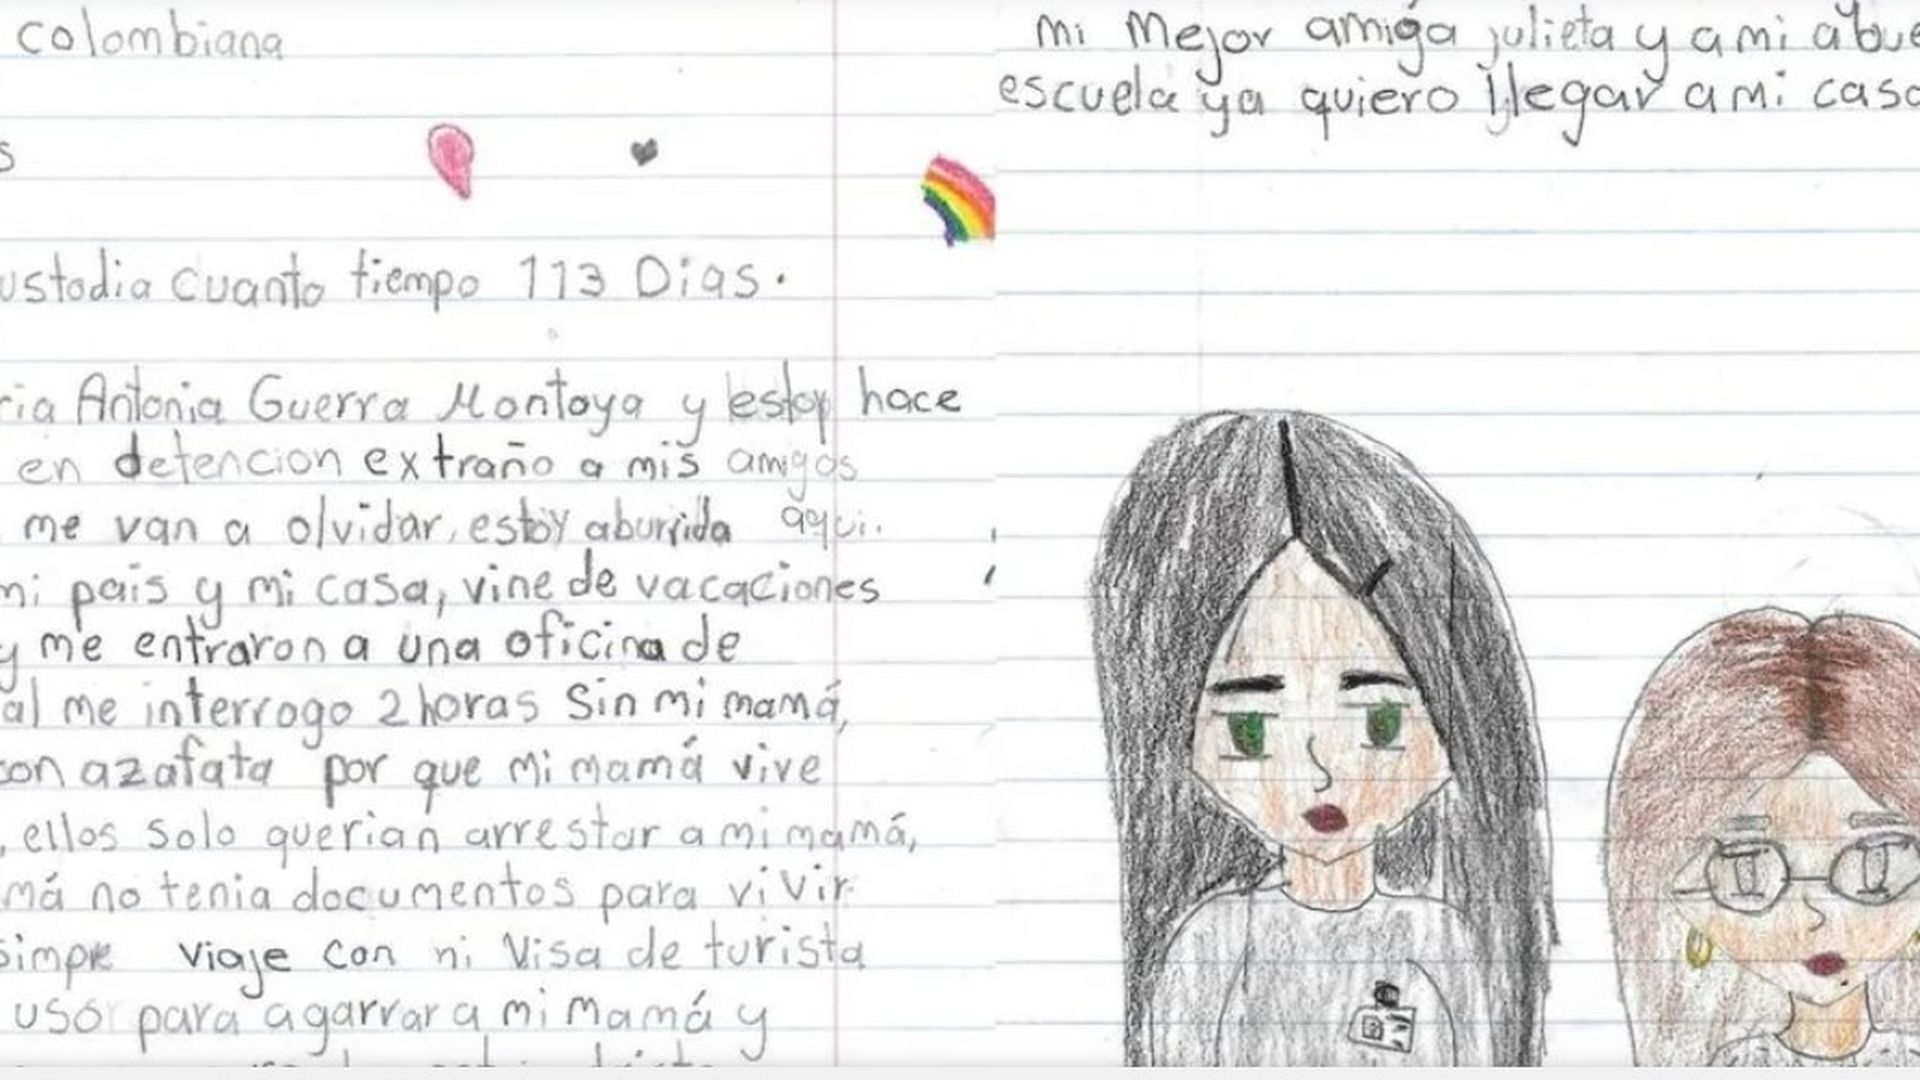 colombiana
s
ustodia cuanto tiempo 113 Dias.
ria Antonia Guerra Montoya y estoy hace
en detencion extraño a mis amigos
me van a olvidar, estoy aburrida aqui.
mi pais y mi casa, vine de vacaciones
y me entraron a una oficina de
al me interrogo 2 horas Sin mi mamá,
con azafata por que mi mamá vive
, ellos solo querian arrestar a mi mamá,
má no tenia documentos para vivir
simpre viaje con ni Visa de turista
uso para agarrar a mi mamá y
mi Mejor amiga julieta y a mi abue
escuela ya quiero llegar a mi casa